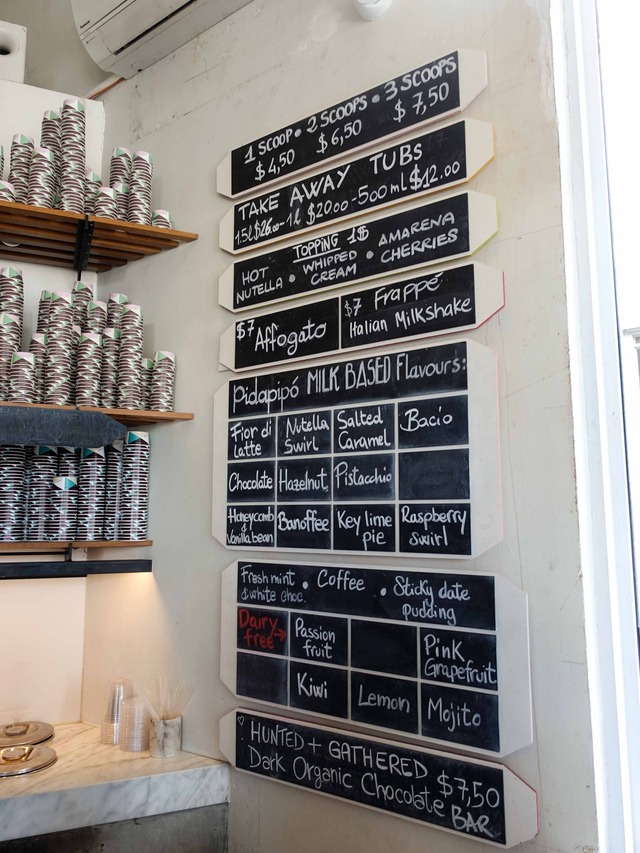 1 SCOOP • 2 SCOOPS • 3 SCOOPS
$4,50 $6,50 $7,50
TAKE AWAY TUBS
1.5l $26.00 - 1l $20.00 - 500ml $12.00
TOPPING 1$
HOT NUTELLA • WHIPPED CREAM • AMARENA CHERRIES
$7 Affogato
$7 Frappé
Italian Milkshake
Pidapipó MILK BASED Flavours:
Fior di latte
Nutella Swirl
Salted Caramel
Bacio
Chocolate
Hazelnut
Pistacchio
Honeycomb Vanilla bean
Banoffee
Key lime pie
Raspberry swirl
Fresh mint & white choc. • Coffee • Sticky date pudding
Dairy free →
Passion fruit
Pink Grapefruit
Kiwi
Lemon
Mojito
♡ HUNTED + GATHERED
Dark Organic Chocolate BAR $7,50